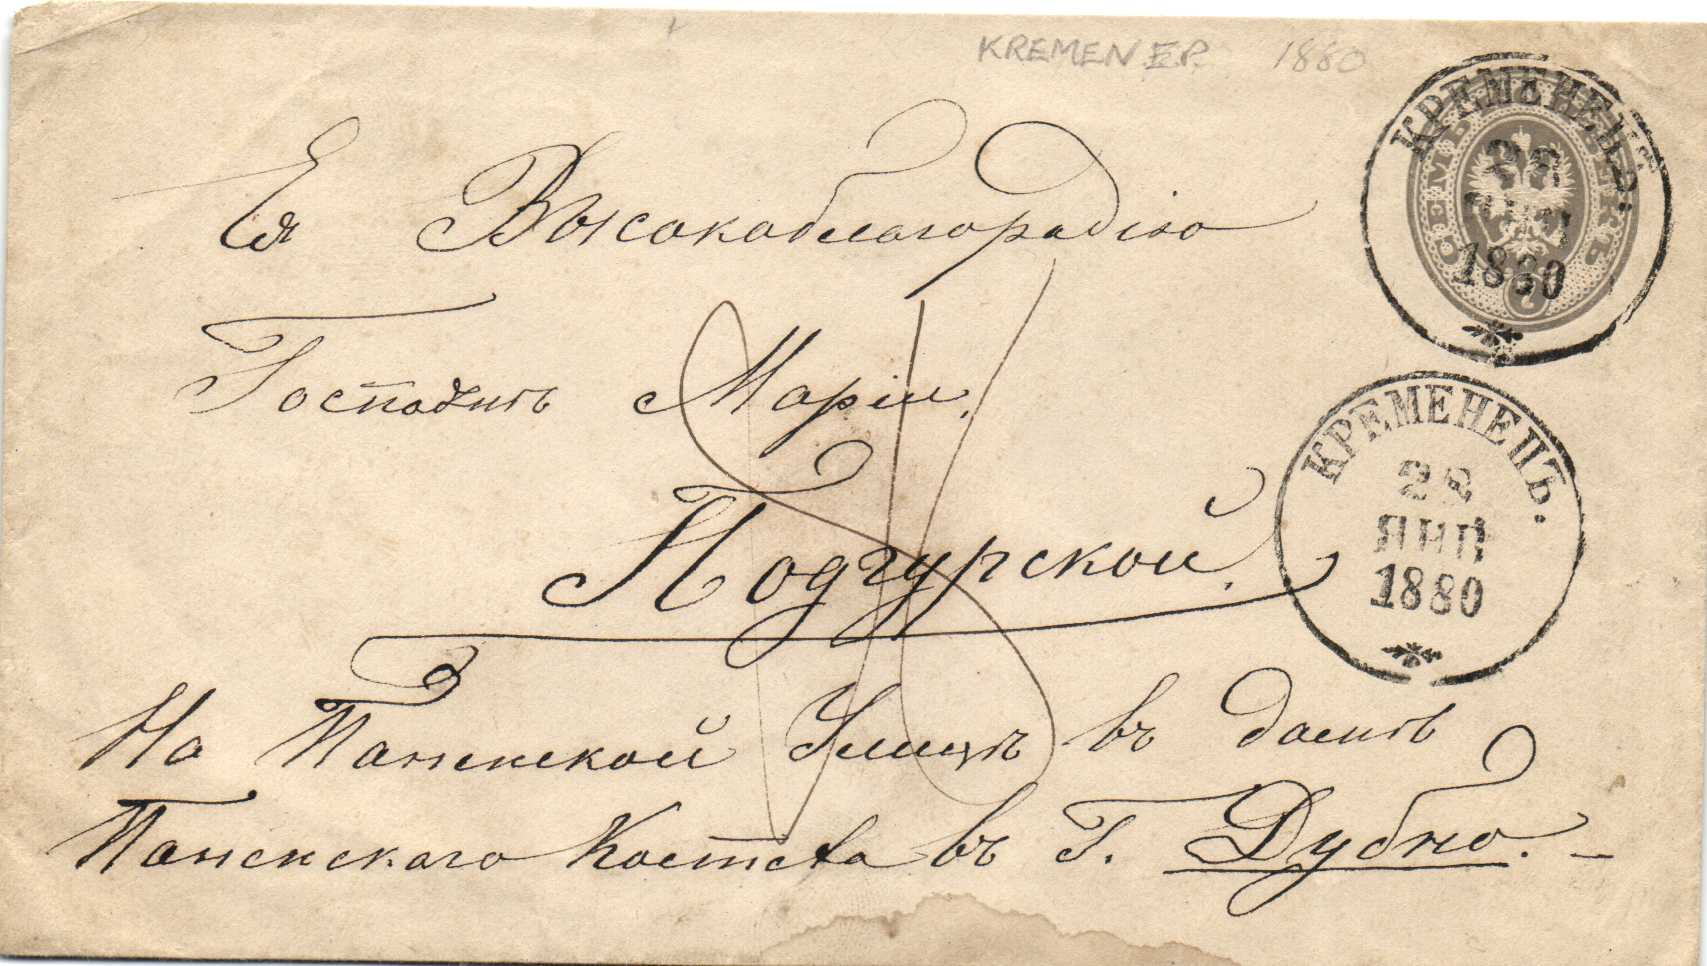 KREMENEP. 1880
Ея Высокоблагородію
Госпожѣ Маріи
Подгурской.
На Паненской Улицѣ въ домѣ
Паненскаго Костела въ Г. Дубно. –
КРЕМЕНЕЦЪ.
ЯНВ
1880
СЕМЬ КОП.
7
КРЕМЕНЕЦЪ.
28
ЯНВ
1880